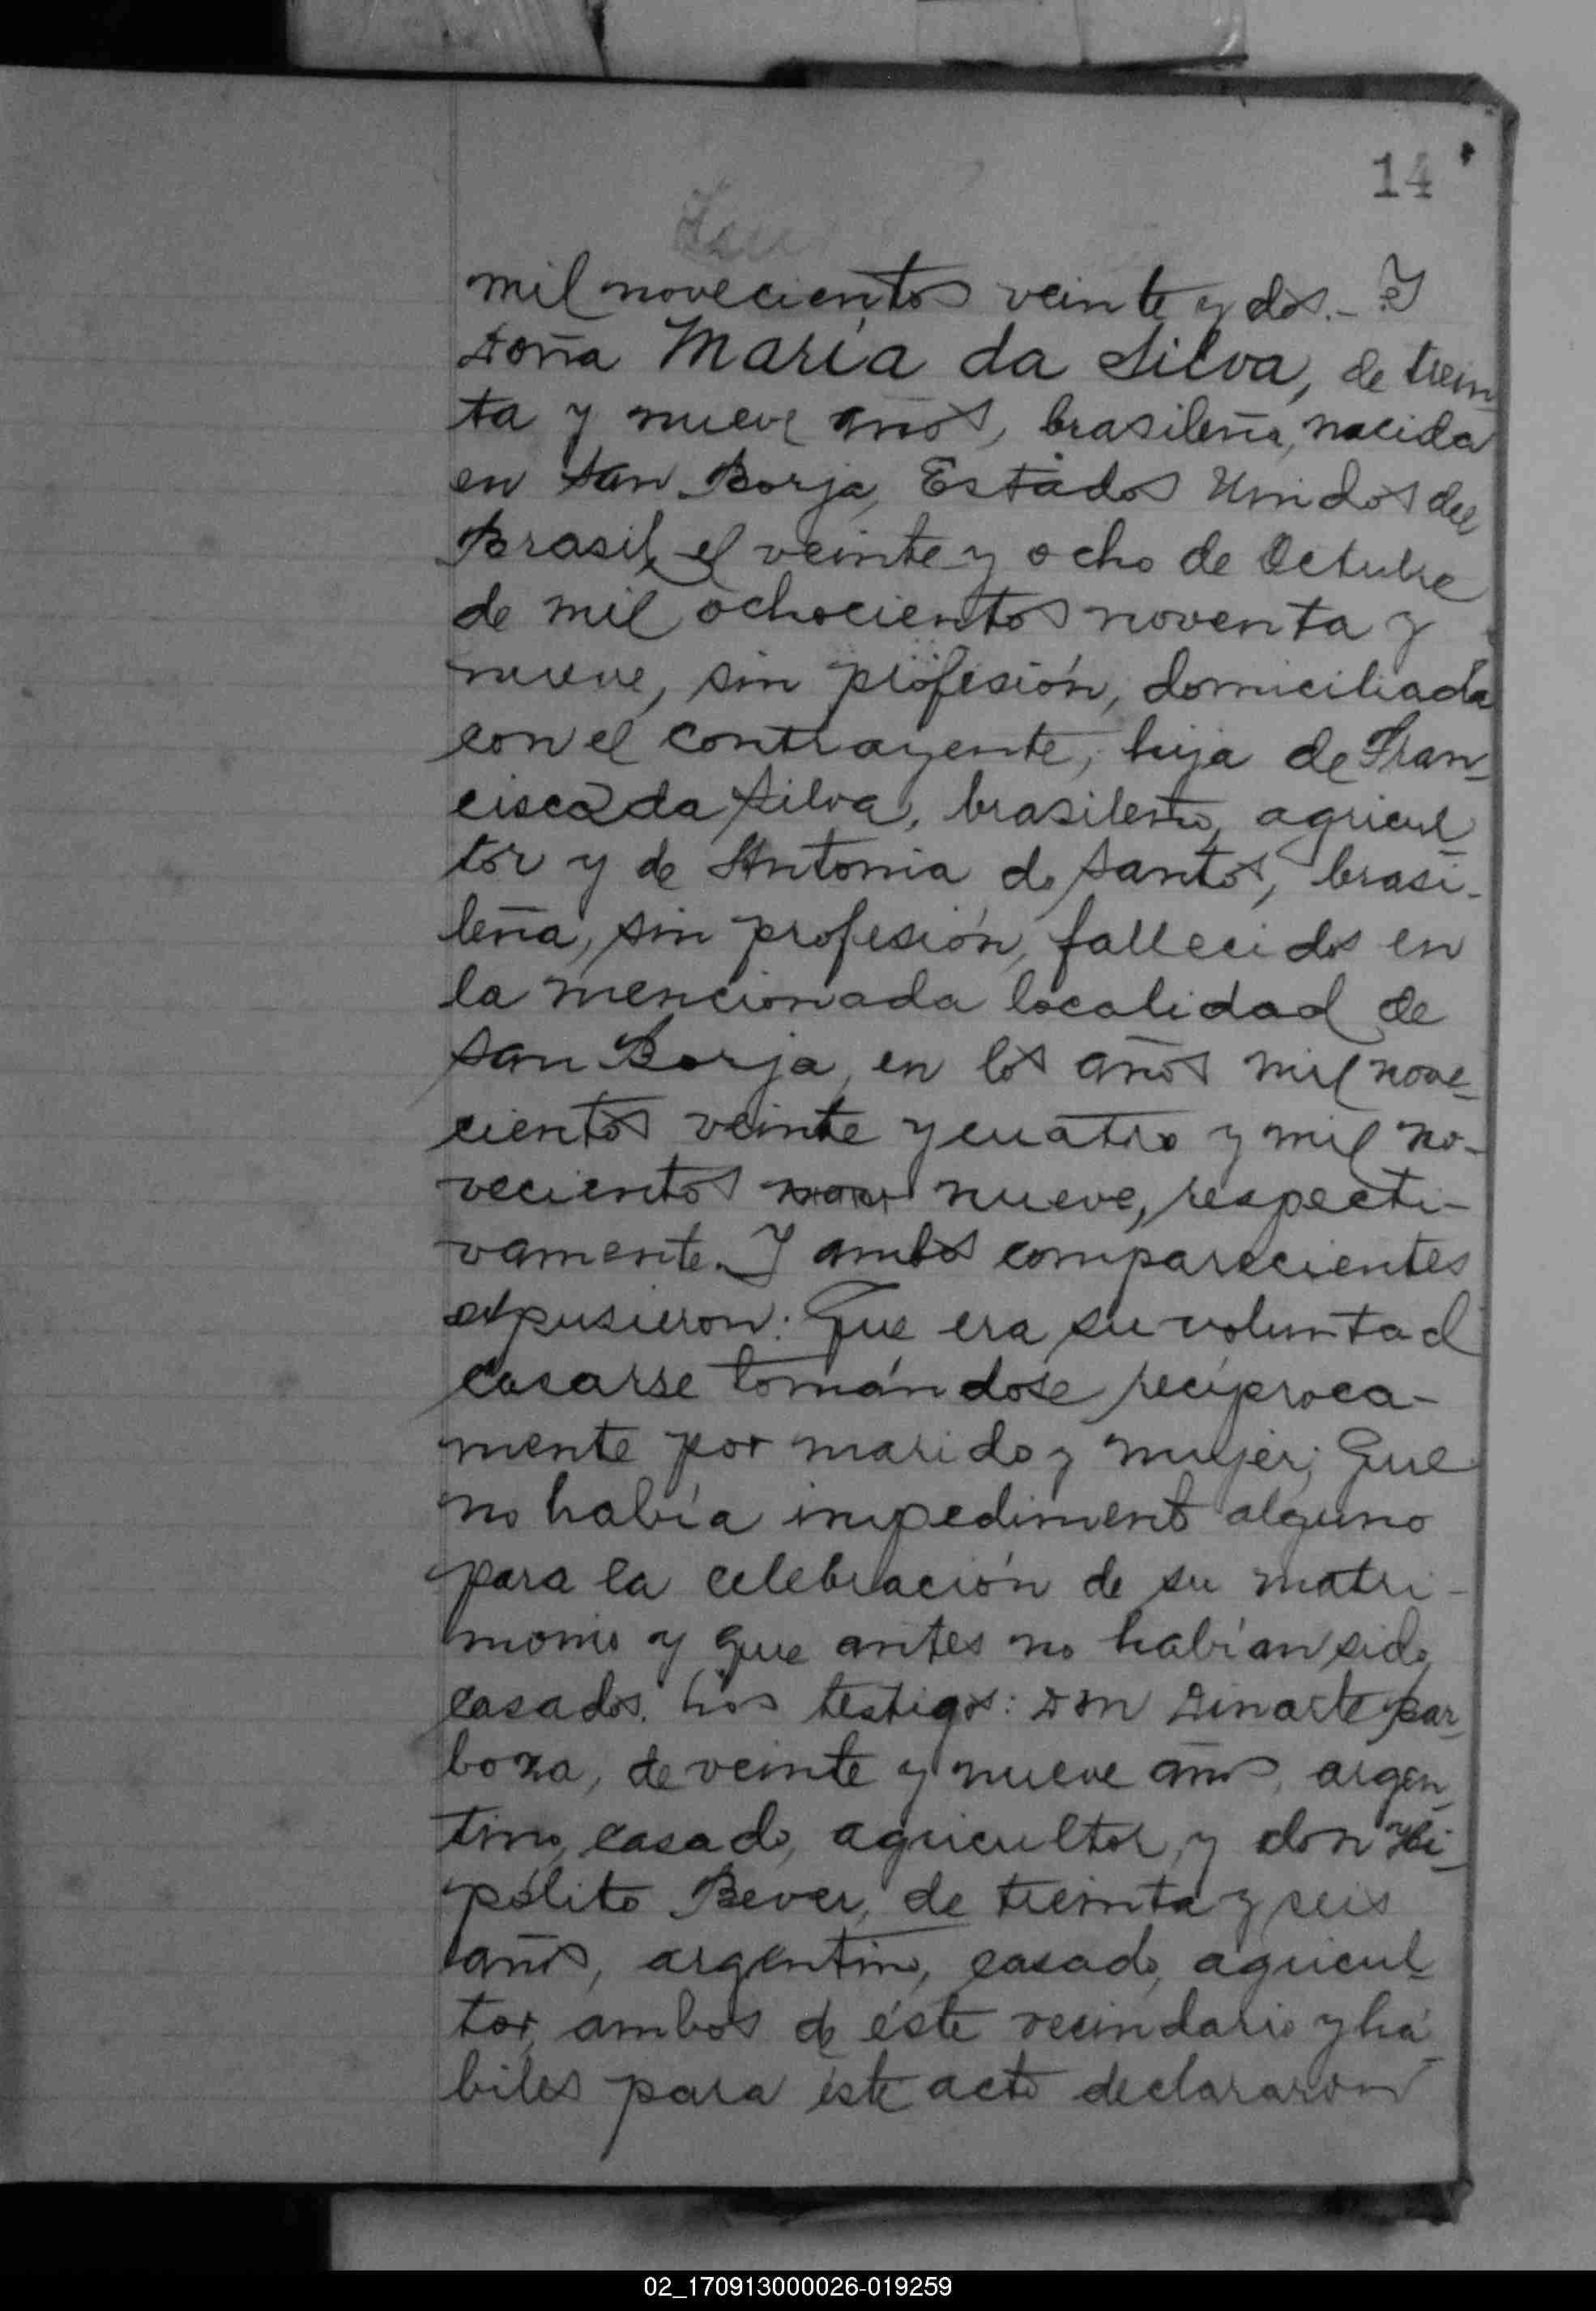 14
mil novecientos veinte y dos.- Y
Doña María da Silva, de trein
ta y nueve años, brasileña, nacida
en San Borja, Estados Unidos del
Brasil, el veinte y ocho de Octubre
de mil ochocientos noventa y
nueve, sin profesión, domiciliada
con el contrayente, hija de Fran-
cisco da Silva, brasileño, agricul-
tor y de Antonia do Santos, brasi-
leña, sin profesión, fallecidos en
la mencionada localidad de
San Borja, en los años mil nove-
cientos veinte y cuatro y mil no-
vecientos nueve, respecti-
vamente. Y ambos comparecientes
expusieron: Que era su voluntad
casarse tomándose recíproca-
mente por marido y mujer; Que
no había impedimento alguno
para la celebración de su matri-
monio y que antes no habían sido
casados. Los testigos: Don Dinarte Bar-
boza, de veinte y nueve años, argen-
tino, casado, agricultor, y don Hi-
pólito Bever, de treinta y seis
años, argentino, casado, agricul-
tor, ambos de éste vecindario y há-
biles para éste acto declararon
02_170913000026-019259